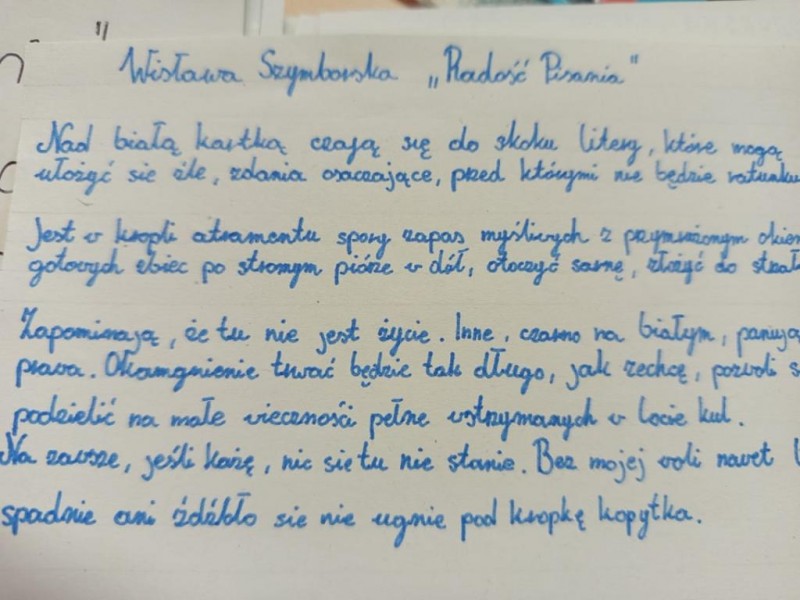 Wisława Szymborska „Radość Pisania"
Nad białą kartką czają się do skoku litery, które mogą
ułożyć się źle, zdania osaczające, przed którymi nie będzie ratunku
Jest w kropli atramentu spory zapas myśliwych z przymrużonym okiem
gotowych zbiec po stromym piórze w dół, otoczyć sarnę, złożyć do strzału
Zapominają, że tu nie jest życie. Inne, czarno na białym, panują
prawa. Okamgnienie trwać będzie tak długo, jak zechcę, pozwoli s
podzielić na małe wieczności pełne wstrzymanych w locie kul.
Na zawsze, jeśli każę, nic się tu nie stanie. Bez mojej woli nawet l
spadnie ani źdźbło się nie ugnie pod kropkę kopytka.